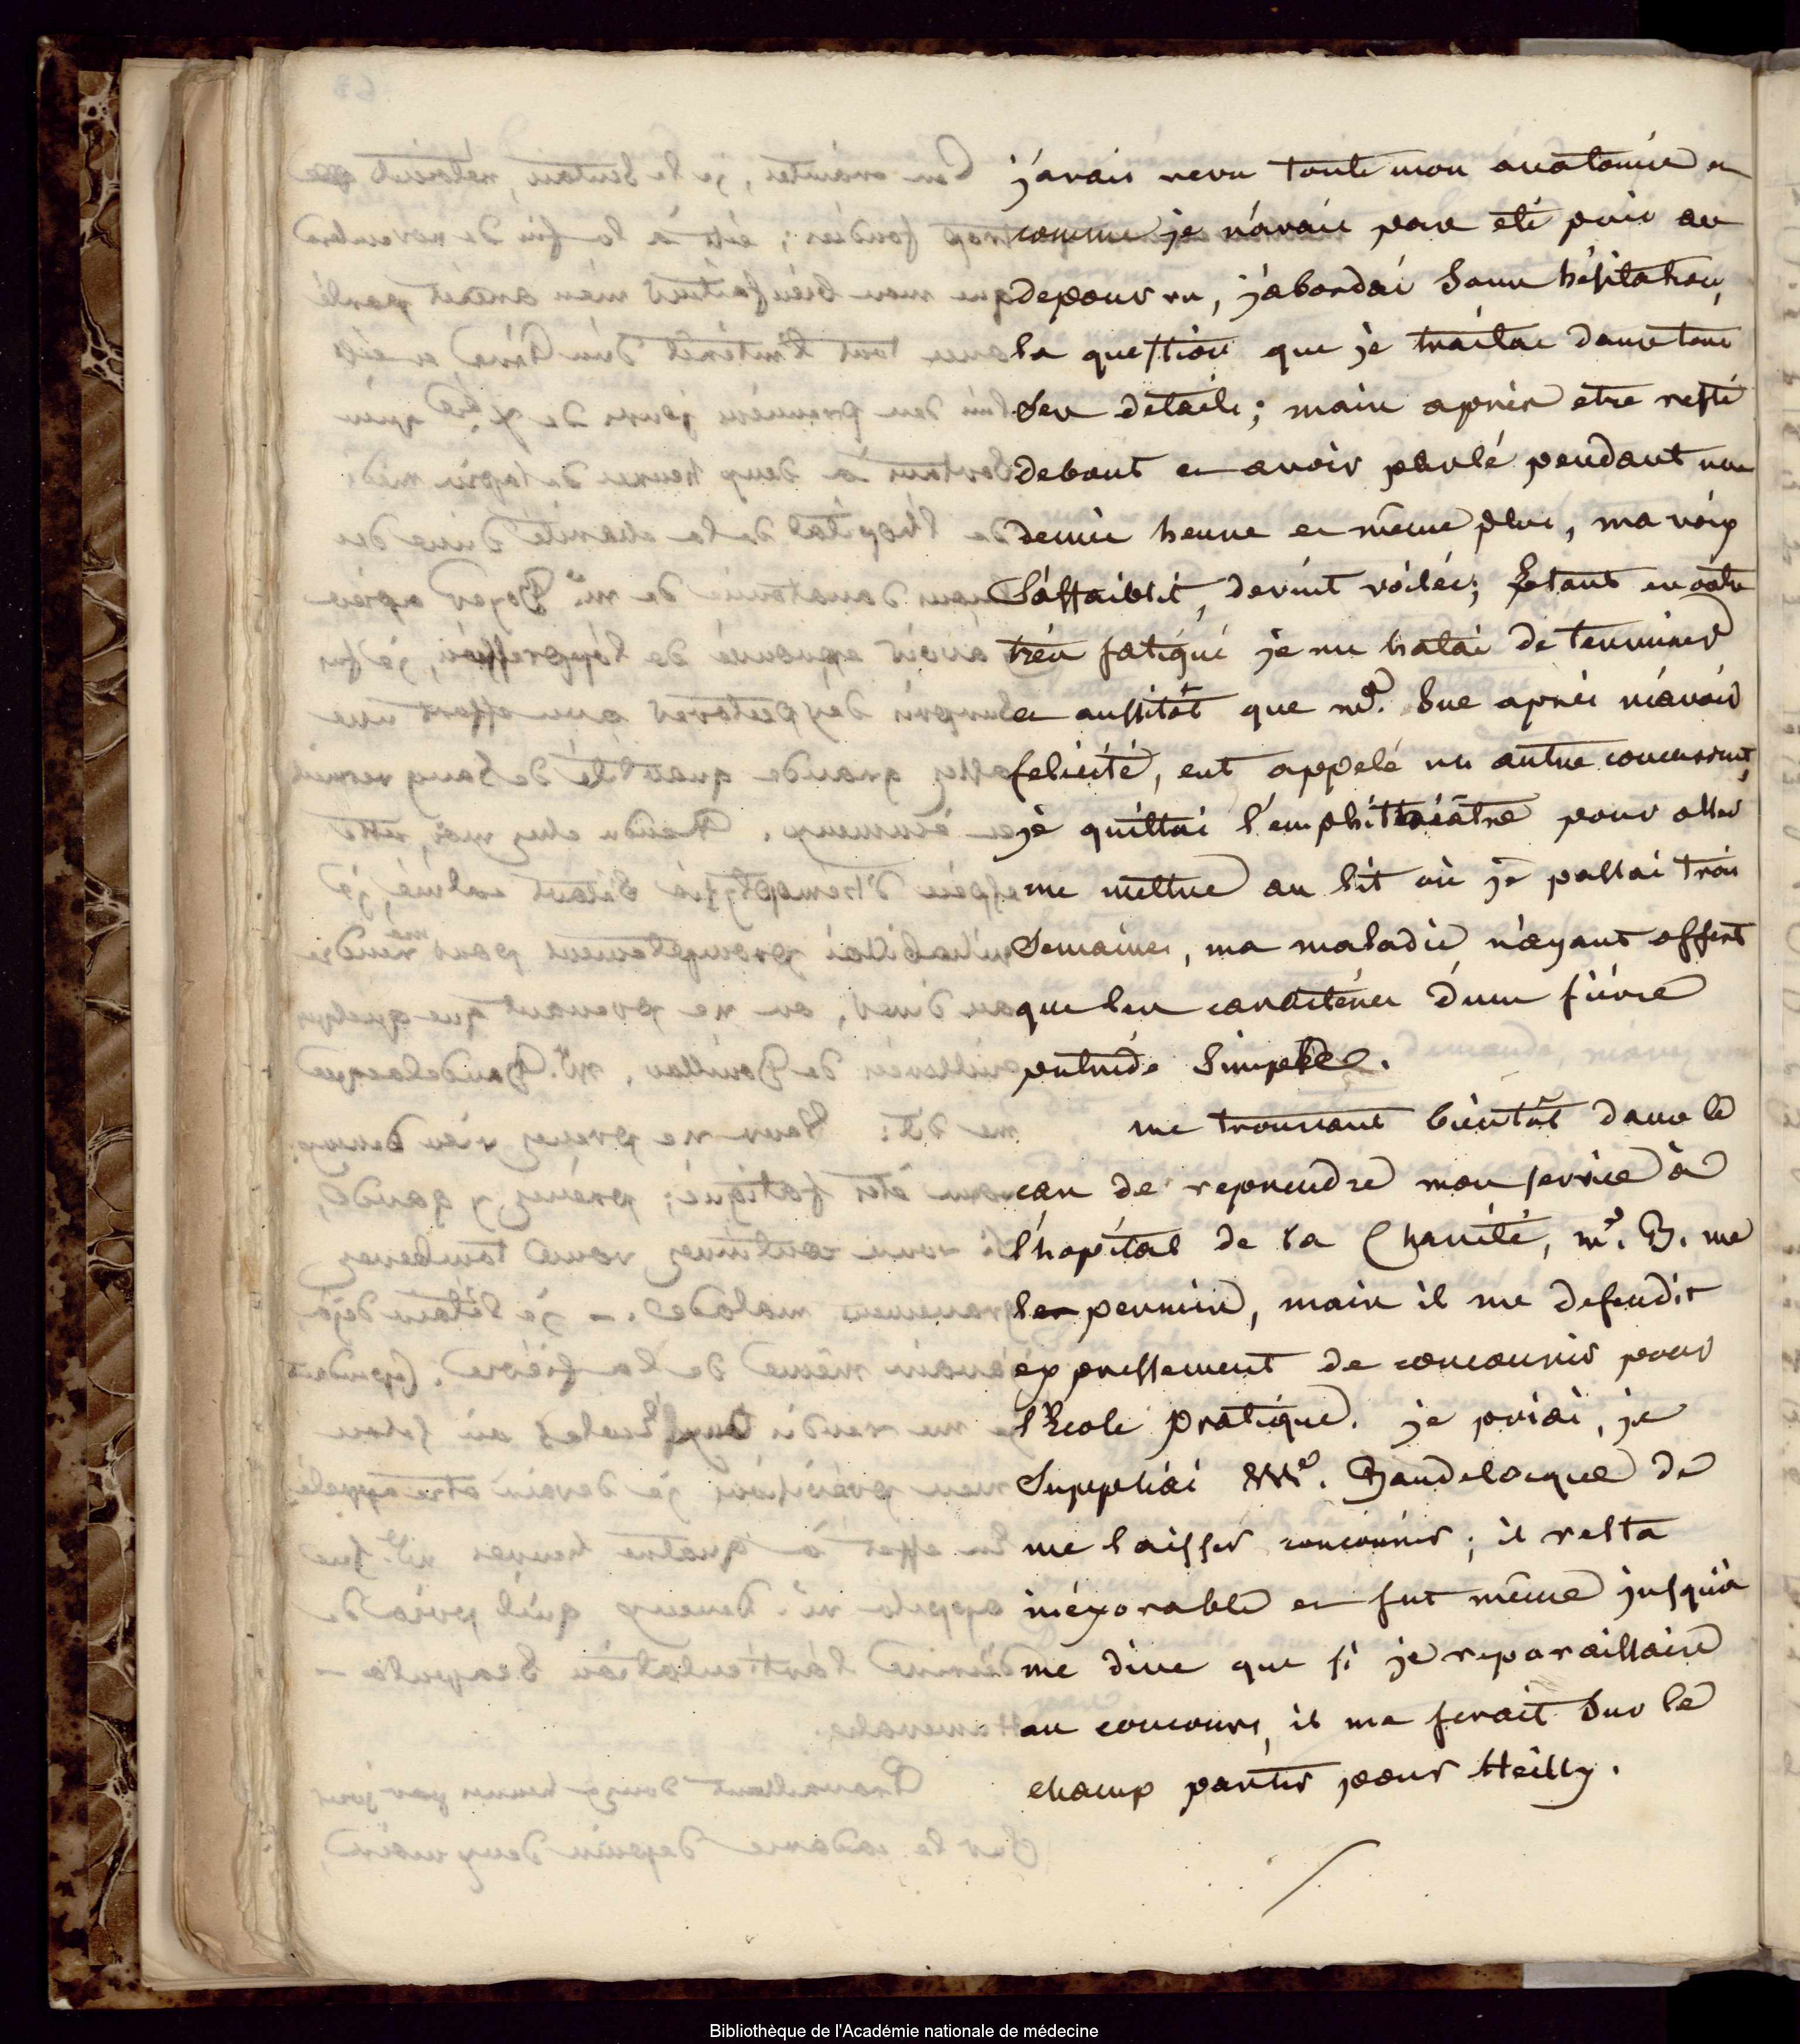 j'avais revu toute mon anatomie et
comme je n'avais pas eté pris au
depourvu, j'abordai sans hésitation,
la question que je traitai dans tous
ses détails; mais après etre resté
debout et avoir parlé pendant une
demie heure et même plus, ma voix
s'affaiblit, devint voilée; Etant en outre
très fatigué je me hatai de terminer
et aussitôt que mr. Sue après m'avoir
felicité, eut appelé un autre concurrent,
je quittai l'emphithéâtre pour aller
me mettre au lit où je passai trois
semaines, ma maladie n'ayant offert
que les caractères d'une fièvre
putride simple.
me trouvant bientôt dans le
cas de reprendre mon service à
l'hopital de la Charité, mr. B. me
le permit, mais il me defendit
expressement de concourir pour
l'Ecole pratique. je priai, je
suppliai Mr. Baudelocque de
me laisser concourir; il resta
inéxorable et fut même jusqu'à
me dire que si je reparaissais
au concours, il me ferait sur le
champ partir pour Heilly.
Bibliothèque de l'Académie nationale de médecine